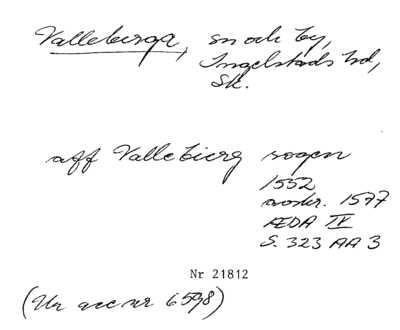 Valleberga, sn och by,
Ingelstads hd,
Sk.
aff Vallebierg sogen
1552
avskr. 1577
ÆDA IV
S. 323 AA 3
Nr 21812
(Ur acc nr 6598)